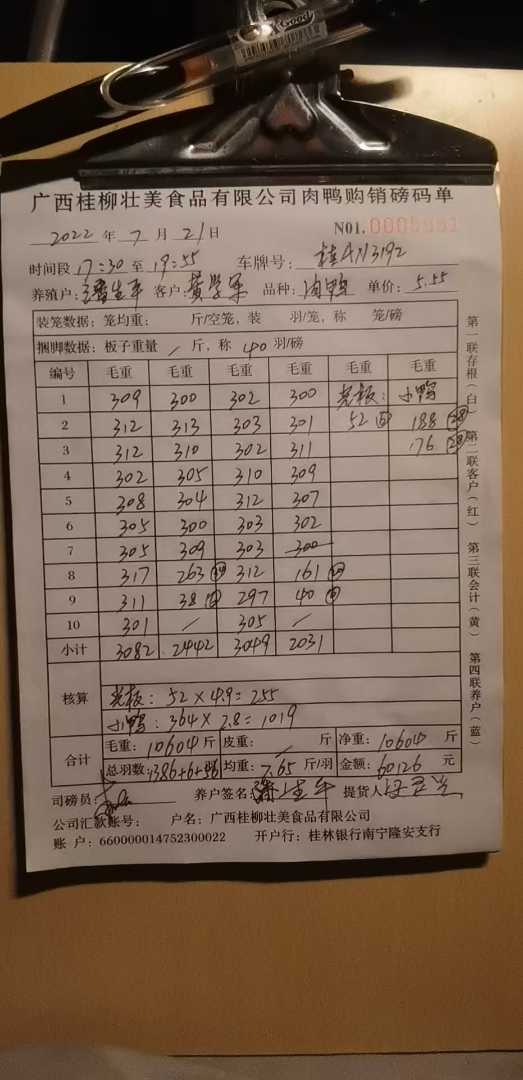 Good
广西桂柳壮美食品有限公司肉鸭购销磅码单
2022 年 7 月 21 日 N01.
时间段 17:30 至 19:55 车牌号:
养殖户: 客户: 黄学军 品种: 肉鸭 单价: 5.55
装笼数据: 笼均重: 斤/空笼, 装 羽/笼, 称 笼/磅
捆脚数据: 板子重量 / 斤, 称 40 羽/磅
编号 毛重 毛重 毛重 毛重 毛重 毛重
1 309 300 302 300 光板: 小鸭
2 312 313 303 301 52 188
3 312 310 302 311 176
4 302 305 310 309
5 308 304 312 307
6 305 300 303 302
7 305 309 303 300
8 317 263 312 161
9 311 38 297 40
10 301 / 305 /
小计 3082 2442 3049 2031
核算 光板: 52×4.9=255
小鸭: 364×2.8=1019
合计 毛重: 10604 斤 皮重: / 斤 净重: 10604 斤
总羽数: 1386+6+56 羽 均重: 7.65 斤/羽 金额: 60126 元
司磅员: 养户签名: 提货人
公司汇款账号: 户名: 广西桂柳壮美食品有限公司
账 户: 660000014752300022 开户行: 桂林银行南宁隆安支行
第一联存根(白) 第二联客户(红) 第三联会计(黄) 第四联养户(蓝)